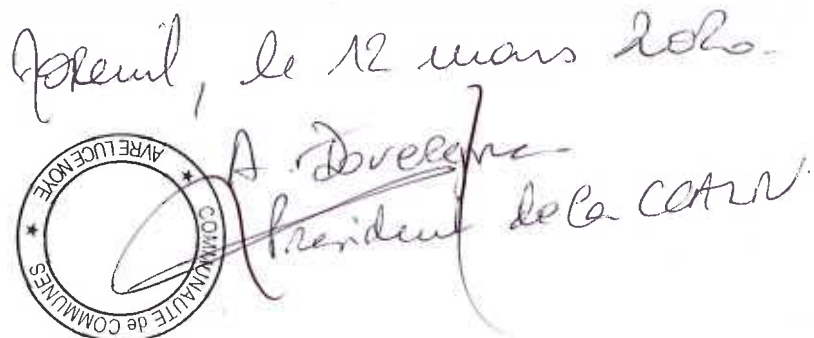 Moreuil, le 12 mars 2020.
A. Dovergne
Président de la CCALN.
COMMUNAUTE de COMMUNES
AVRE LUCE NOYE